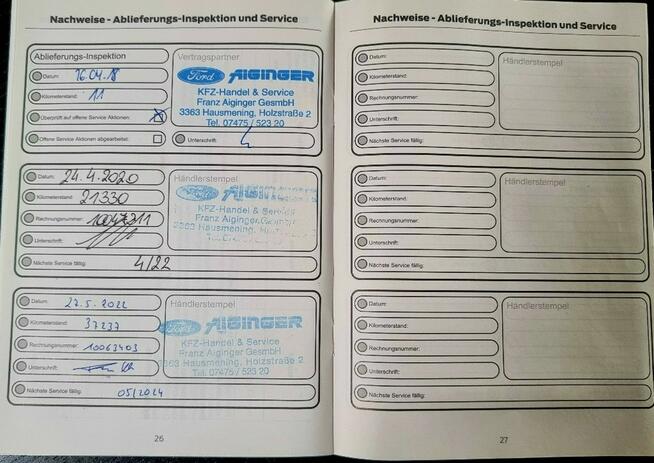 Nachweise - Ablieferungs-Inspektion und Service
Ablieferungs-Inspektion
Datum: 16.04.18
Kilometerstand: 11
Überprüft auf offene Service Aktionen:
Offene Service Aktionen abgearbeitet:
Vertragspartner
Ford AIGINGER
KFZ-Handel & Service
Franz Aiginger GesmbH
3363 Hausmening, Holzstraße 2
Tel. 07475 / 523 20
Unterschrift:
Datum: 24.4.2020
Kilometerstand: 21330
Rechnungsnummer: 10047311
Unterschrift:
Nächste Service fällig: 4/22
Händlerstempel
Ford AIGINGER
KFZ-Handel & Service
Franz Aiginger GesmbH
3363 Hausmening, Holzstraße 2
Datum: 27.5.2022
Kilometerstand: 37237
Rechnungsnummer: 10063403
Unterschrift:
Nächste Service fällig: 05/2024
Händlerstempel
Ford AIGINGER
KFZ-Handel & Service
Franz Aiginger GesmbH
3363 Hausmening, Holzstraße 2
Tel. 07475 / 523 20
26
Nachweise - Ablieferungs-Inspektion und Service
Datum:
Kilometerstand:
Rechnungsnummer:
Unterschrift:
Nächste Service fällig:
Händlerstempel
Datum:
Kilometerstand:
Rechnungsnummer:
Unterschrift:
Nächste Service fällig:
Händlerstempel
Datum:
Kilometerstand:
Rechnungsnummer:
Unterschrift:
Nächste Service fällig:
Händlerstempel
27